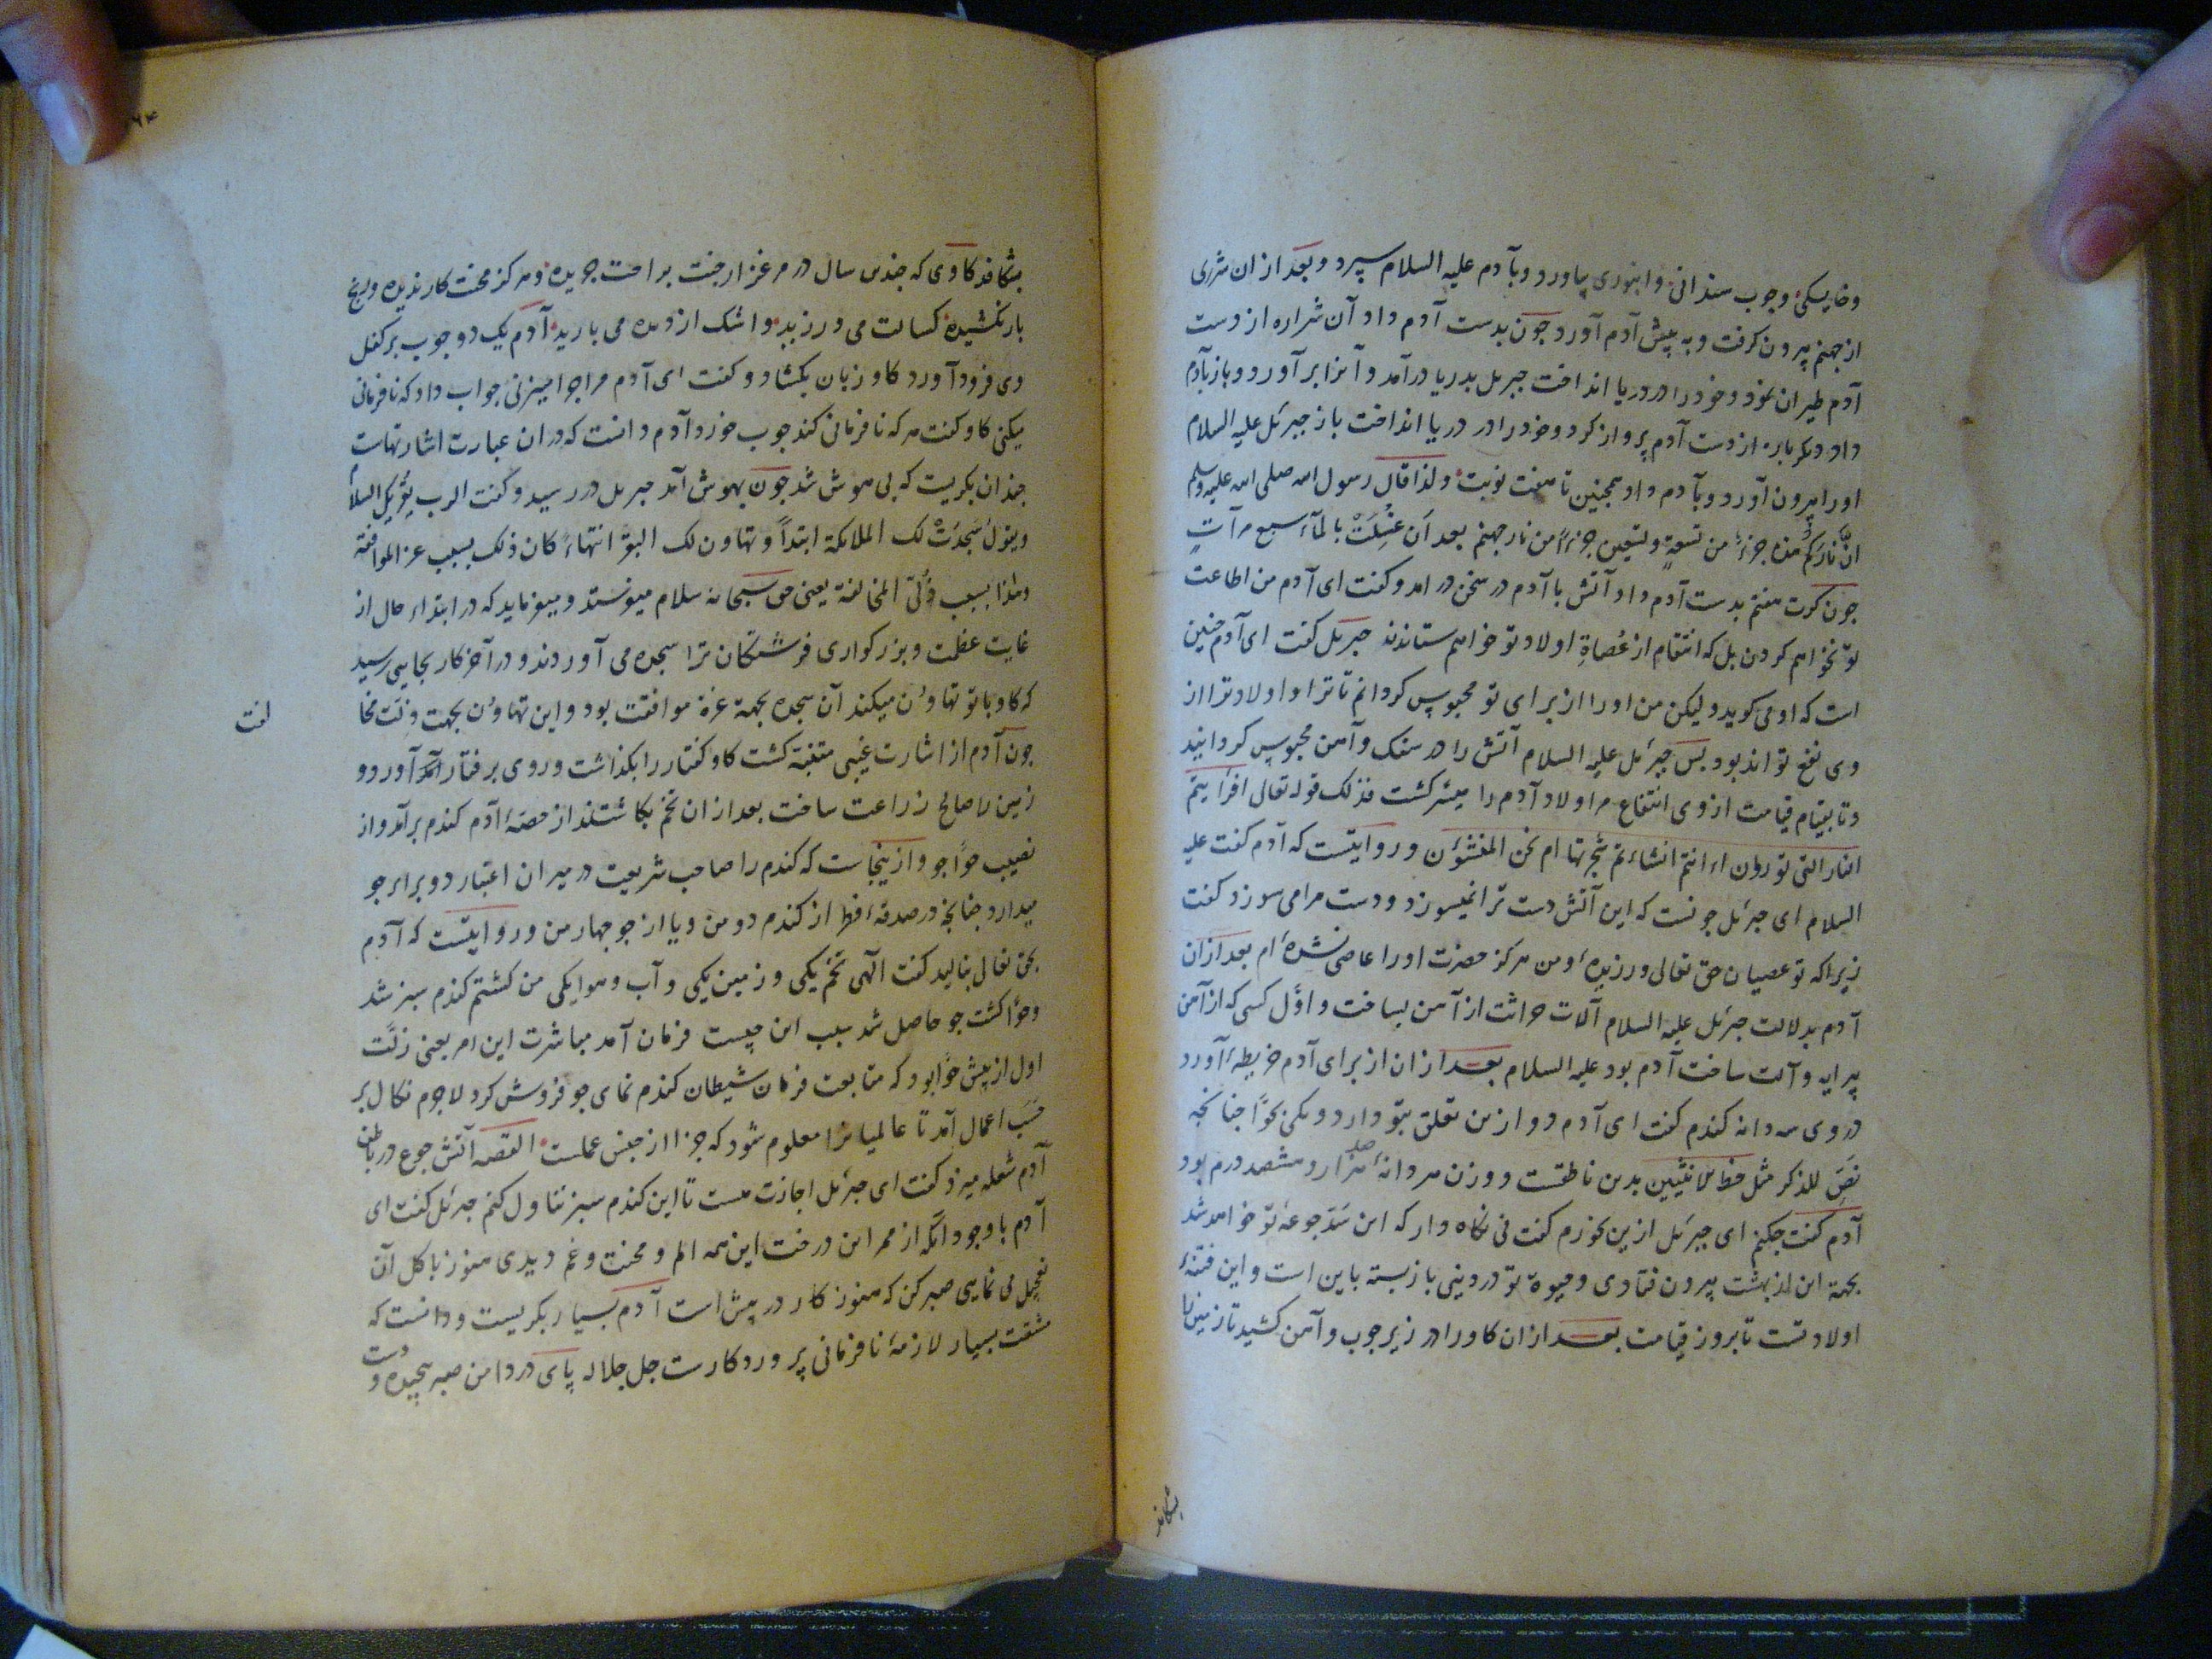 وخایسکی وچوب سندانی وانبوری بیاورد وبآدم علیه السلام سپرد وبعد ازان شرری
از جهنم بیرون کرفت وبه پیش آدم آورد جون بدست آدم داد آن شراره از دست
آدم طیران نمود وخود را در دریا انداخت جبرئل بدریا درآمد وآنرا برآورد وباز بآدم
داد دیکر باره از دست آدم پرواز کرد وخود را در دریا انداخت باز جبرئل علیه السلام
اورا بیرون آورد وبآدم داد همجنین تا هفت نوبت ولذا قال رسول الله صلی الله علیه وسلم
انّ نارکم هذه جزءٌ من تسعةٍ وتسعین جزءًا من نار جهنم بعد اَن غُسِلَتْ بالمآء سبع مرآتٍ
جون کرت هفتم بدست آدم داد آتش با آدم در سخن در امد وکفت ای آدم من اطاعت
تو نخواهم کردن بل که انتقام از عُصاةِ اولاد تو خواهم ستاندند جبرئل کفت ای آدم جنین
است که او می کوید ولیکن من اورا از برای تو محبوس کردانم تا ترا واولاد ترا از
وی نفع تواند بود بس جبرئل علیه السلام آتش را در سنک وآهن محبوس کردانید
وتا بقیام قیامت ازوی انتفاع مر اولاد آدم را میسّر کشت فذلک قوله تعالی افرایتم
النار التی تورون اءانتم انشاءتم شجرتها ام نحن المنشؤن وروایتست که آدم کفت علیه
السلام ای جبرئل جونست که این آتش دست ترا نمیسوزد ودست مرا می سوزد کفت
زیراکه تو عصیان حق تعالی ورزیدهٔ ومن هرکز حضرت اورا عاصی نشدهٔ ام بعد ازان
آدم بدلالت جبرئل علیه السلام آلات حراثت از آهن بساخت واوّل کسی که از آهن
پیرایه وآلت ساخت آدم بود علیه السلام بعد ازان از برای آدم خریطهٔ آورد
در وی سه دانه کندم کفت ای آدم دو ازین تعلق بتو دارد ویکی بحوّا جنانجه
نصّ للذکر مثل حظ الانثیین بدین ناطقست ووزن هر دانهٔ صد هزار وهشصد درم بود
آدم کفت جکنم ای جبرئل ازین بخورم کفت نی نکاه دار که این سَدّ جوعهٔ تو خواهد شد
بجهة این از بهشت بیرون فتادی ومیوهٔ تو در دینی باز بسته باین است واین فتنهٔ
اولاد تست تا بروز قیامت بعد ازان کاو را در زیر جوب وآهن کشید تا زمین را
بشکافد
بشکافد کاوی که جندین سال در مرغزار جنت براحت جریده وهرکز محنت کار ندیده ورنج
بار نکشیده کسالت می ورزید واشک از دیده می بارید آدم یک دو جوب بر کفل
وی فرود آورد کاو زبان بکشاد وکفت ای آدم مرا جرا میزنی جواب داد که نافرمانی
میکنی کاو کفت هرکه نافرمانی کند جوب خورد آدم دانست که دران عبارت اشارتهاست
جندان بکریست که بی هوش شد جون بهوش آمد جبرئل در رسید وکفت الرب یقریک السلام
ویقول سَجَدَتْ لک الملائکة ابتداً وتهاون لک البقر انتهاءً کان ذلک بسبب عز الموافقة
وهذا بسبب ذُلّ المخالفة یعنی حق سبحانه سلام میفرستد ومیفرماید که در ابتداء حال از
غایت عظمت وبزرکواری فرشتکان ترا سجده می آوردند ودر آخر کار بجایی رسید
که کاو با تو تهاون میکند آن سجده بجهة عزة موافقت بود واین تهاون بجهت ذلت مخا
لفت
جون آدم از اشارت غیبی متنبّه کشت کاو کفتار را بکذاشت وروی برفتار آورد و
زمین را صالح زراعت ساخت بعد ازان تخم بکاشتند از حصّهٔ آدم کندم برآمد واز
نصیب حوّا جو وازینجاست که کندم را صاحب شریعت در میزان اعتبار دو برابر جو
میدارد جنانجه در صدقهٔ فطر از کندم دو من ویا از جو جهار من وروایتست که آدم
بحق تعالی بنالید کفت الهی تخم یکی وزمین یکی وآب وهوا یکی من کشتم کندم سبز شد
وحوّا کشت جو حاصل شد سبب این چیست فرمان آمد مباشرت این امر یعنی زلّت
اول از پیش حوّا بود که متابعت فرمان شیطان کندم نمای جو فروش کرد لاجرم نکال بر
حسب اعمال آمد تا عالمیانرا معلوم شود که جزا از جنس عملست القصه آتش جوع در باطن
آدم شعله میزد کفت ای جبرئل اجازت هست تا این کندم سبز تناول کنم جبرئل کفت ای
آدم با وجود آنکه از ممر این درخت این همه الم ومحنت وغم دیدی هنوز با کل آن
تعجیل می نمایی صبر کن که هنوز کار در پیش است آدم بسیار بکریست ودانست که
مشقت بسیار لازمهٔ نافرمانی پروردکارست جل جلاله پای در دامن صبر پیچیده ودست